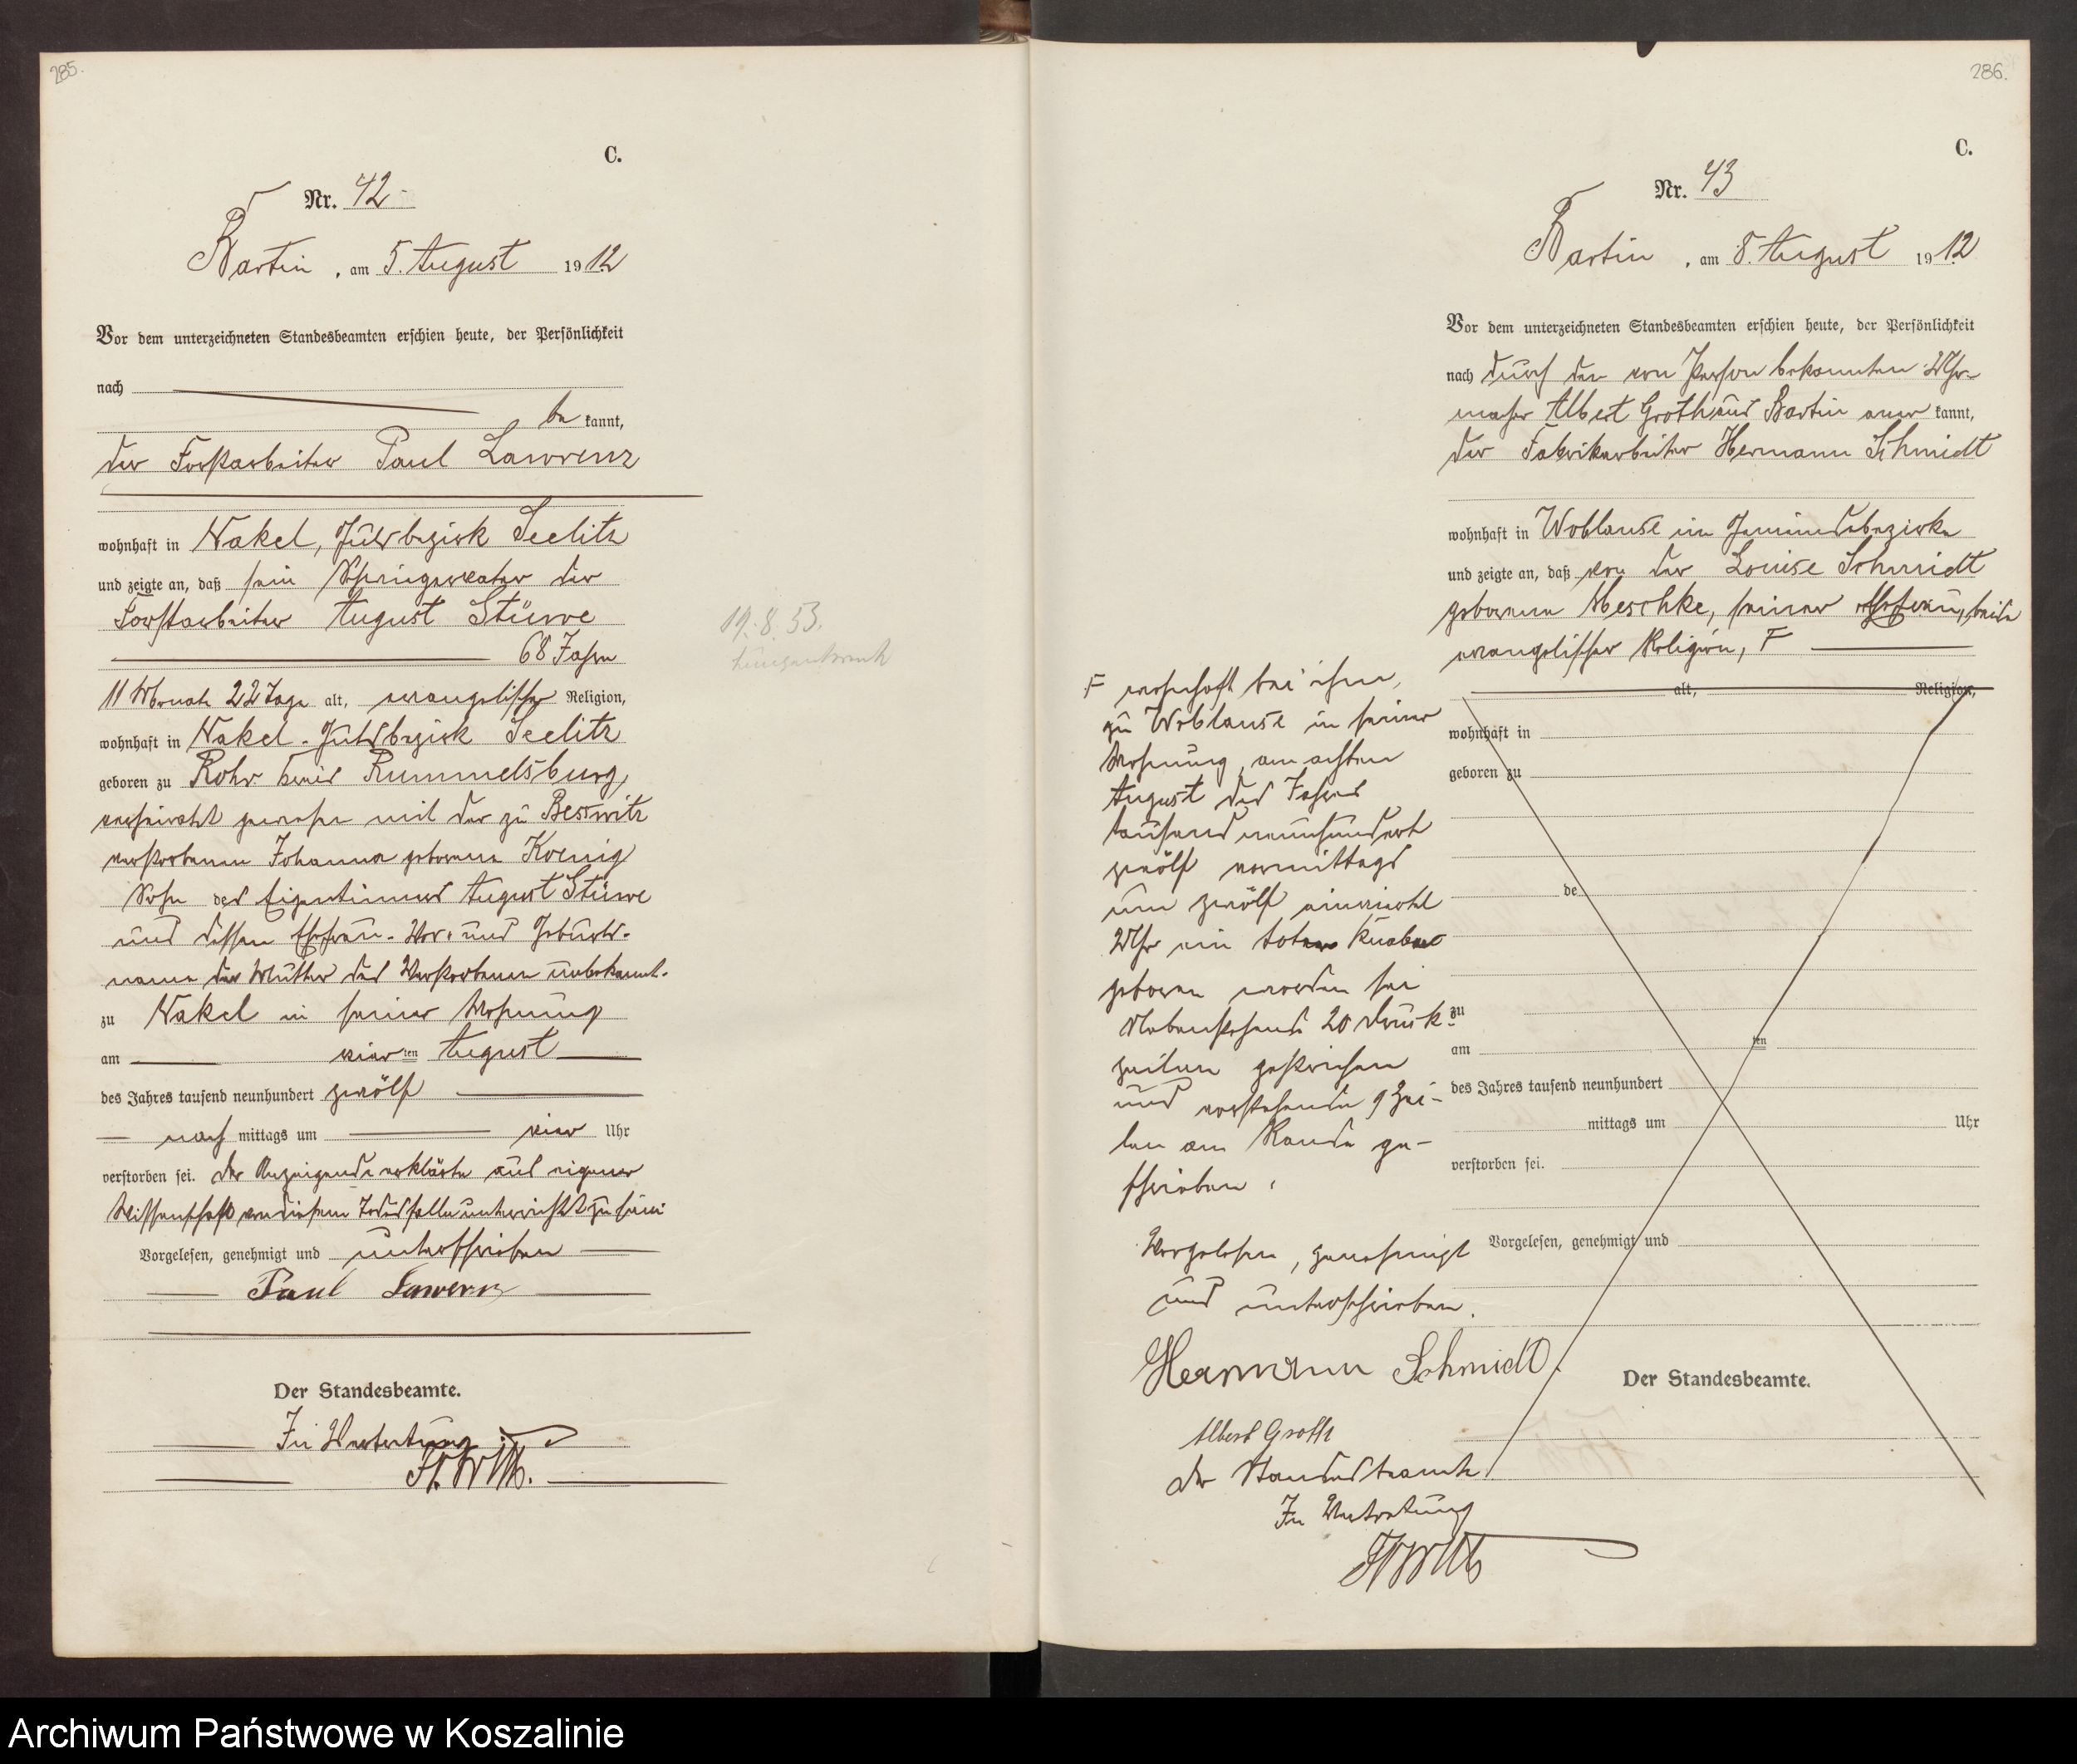 285.
C.
Nr. 42
Bartin, am 5. August 1912
Vor dem unterzeichneten Standesbeamten erschien heute, der Persönlichkeit
nach
be kannt,
der Forstarbeiter Paul Lawrenz
wohnhaft in Nakel, Gutsbezirk Seelitz
und zeigte an, daß sein Schwiegervater der
Forstarbeiter August Stüwe
68 Jahre
11 Monate 22 Tage alt, evangelischer Religion,
wohnhaft in Nakel, Gutsbezirk Seelitz
geboren zu Rohr Kreis Rummelsburg,
verheiratet gewesen mit der zu Besswitz
verstorbenen Johanna geborene Koenig
Sohn des Eigentümers August Stüwe
und dessen Ehefrau. Vor- und Geburts-
name der Mutter des Verstorbenen unbekannt.
zu Nakel in seiner Wohnung
am vier ten August
des Jahres tausend neunhundert zwölf
nach mittags um vier Uhr
verstorben sei. Der Anzeigende erklärte aus eigener
Wissenschaft von diesem Todesfalle unterrichtet zu sein.
Vorgelesen, genehmigt und unterschrieben
Paul Lawrenz
Der Standesbeamte.
In Vertretung
19.8.53.
286.
C.
Nr. 43
Bartin, am 8. August 1912
Vor dem unterzeichneten Standesbeamten erschien heute, der Persönlichkeit
nach durch den von Person bekannten Uhr-
macher Albert Groth aus Bartin aner kannt,
der Fabrikarbeiter Hermann Schmidt
wohnhaft in Woblanse im Gemeindebezirke
und zeigte an, daß von der Louise Schmidt
geborene Meschke, seiner Ehefrau, beide
evangelischer Religion, F
alt, Religion,
wohnhaft in
geboren zu
de
zu
am ten
des Jahres tausend neunhundert
mittags um Uhr
verstorben sei.
Vorgelesen, genehmigt und
Der Standesbeamte.
F wohnhaft bei ihm,
zu Woblanse in seiner
Wohnung, am achten
August des Jahres
tausend neunhundert
zwölf vormittags
um zwölf einviertel
Uhr ein toter Knabe
geboren worden sei
Nebenstehende 20 Druck-
zeilen gestrichen
und vorstehende 9 Zei-
len am Rande ge-
schrieben.
Vorgelesen, genehmigt
und unterschrieben.
Hermann Schmidt.
Albert Groth
Der Standesbeamte
In Vertretung
Archiwum Państwowe w Koszalinie